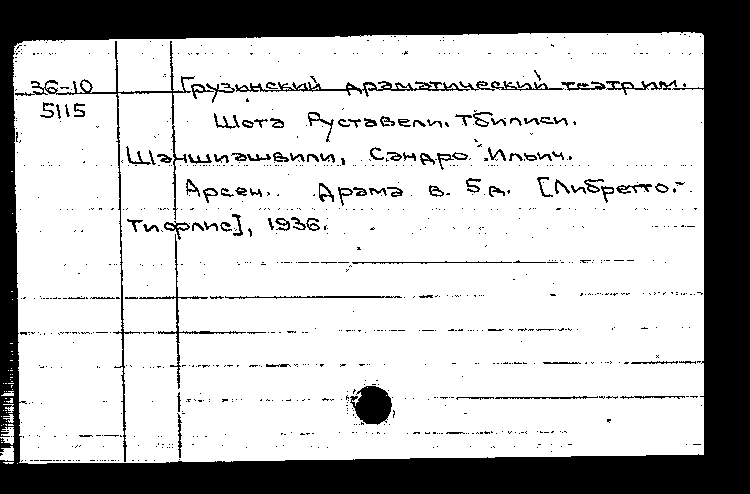 36-10 Грузинский драматический театр им.
5115 Шота Руставели. Тбилиси.
Шаншиашвили, Сандро Ильич.
Арсен. Драма в. 5 д. [Либретто.-
Тифлис], 1936.